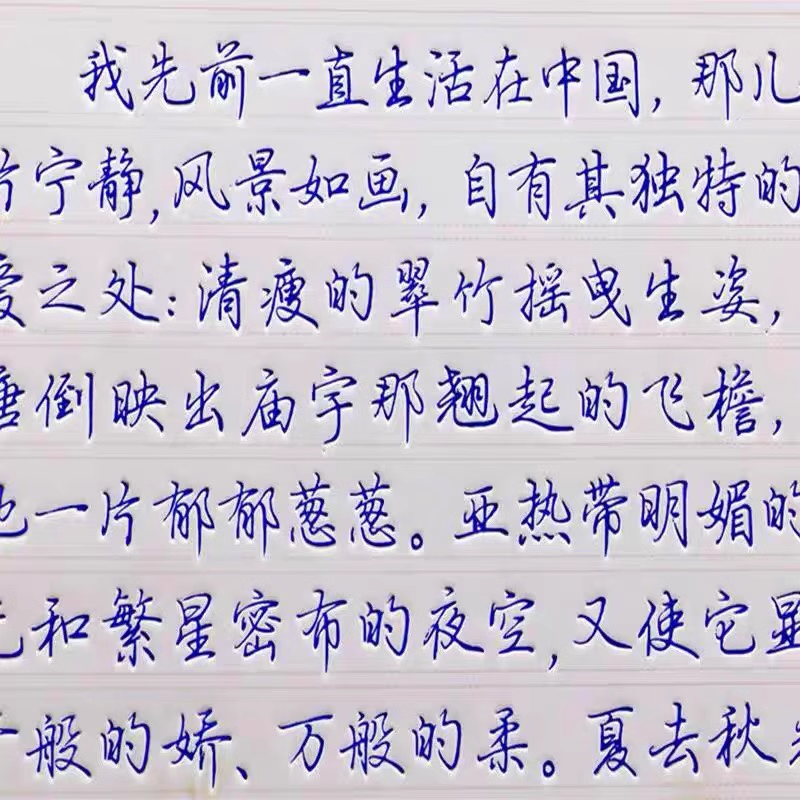 我先前一直生活在中国，那儿
片宁静，风景如画，自有其独特的
爱之处：清瘦的翠竹摇曳生姿，
塘倒映出庙宇那翘起的飞檐，
地一片郁郁葱葱。亚热带明媚的
光和繁星密布的夜空，又使它显
千般的娇、万般的柔。夏去秋来